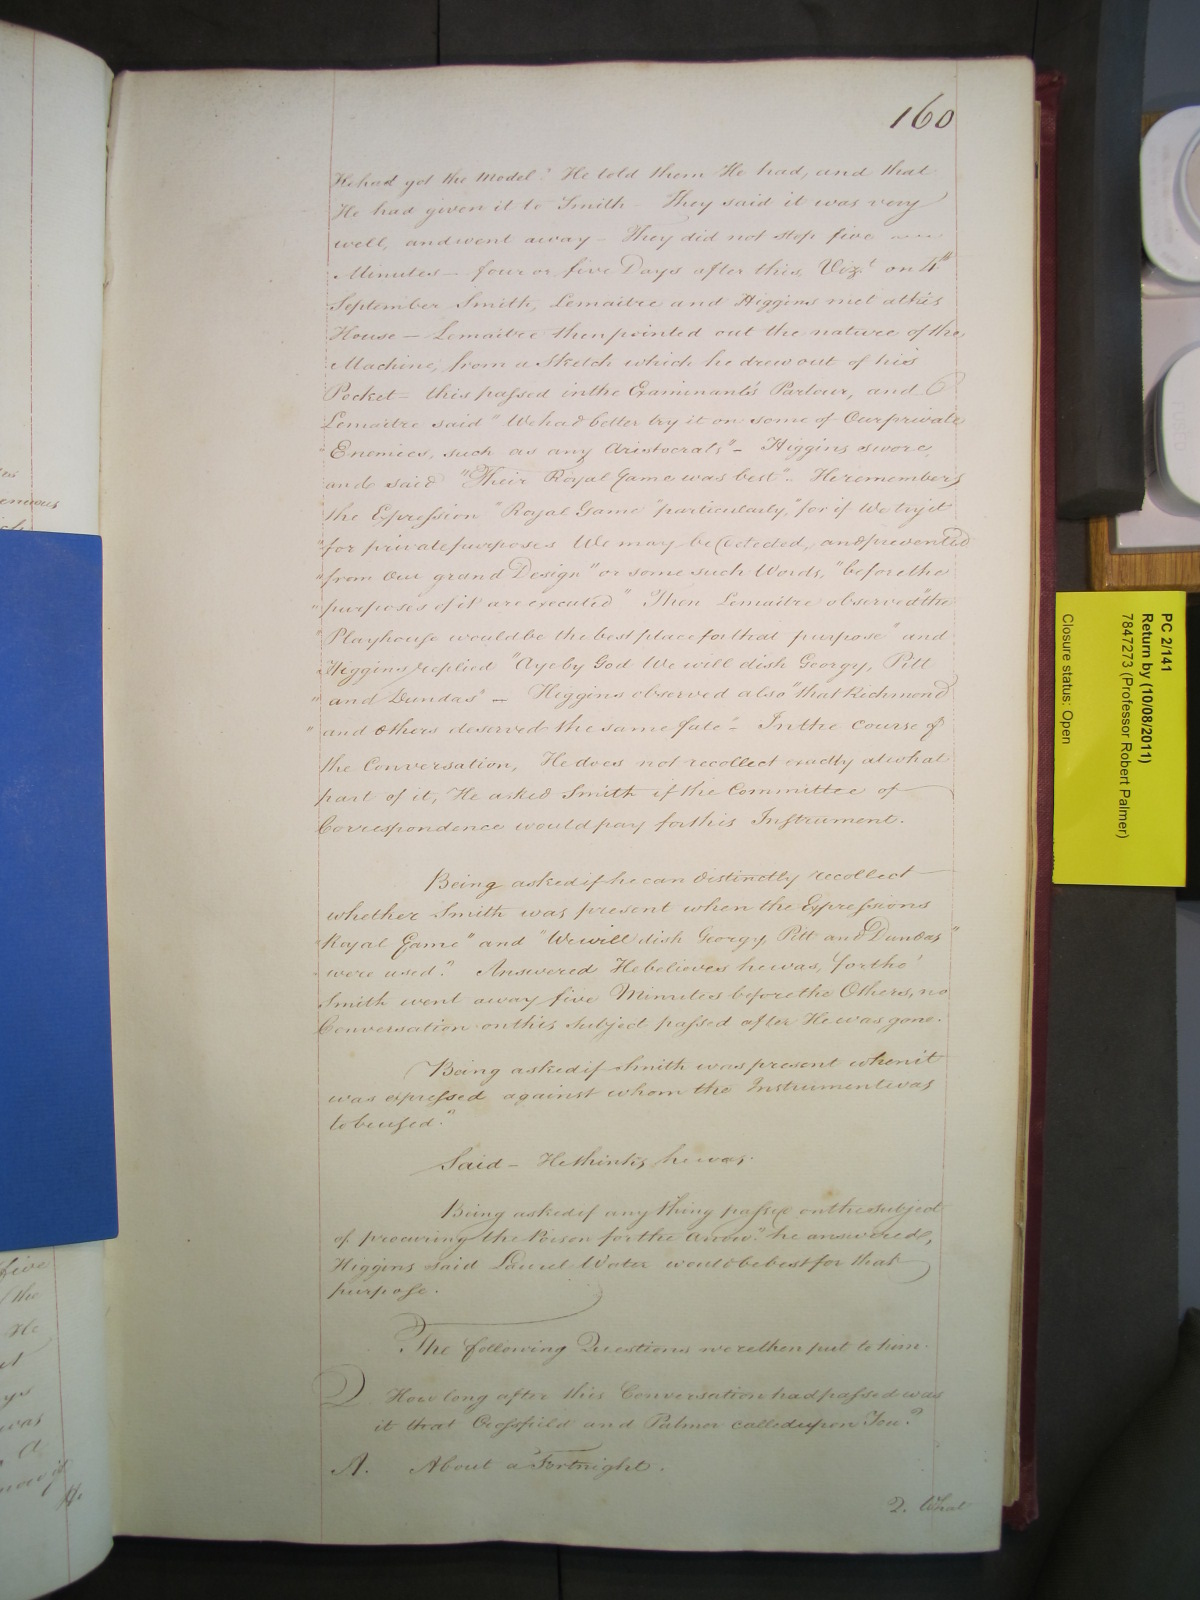 160
He had got the Model? He told them He had, and that
He had given it to Smith – They said it was very
well, and went away – They did not stop five
Minutes – four or five Days after this, Vizt. on 4th
September Smith, Lemaitre and Higgins met at his
House – Lemaitre then pointed out the nature of the
Machine, from a Sketch which he drew out of his
Pocket – this passed in the Examinant's Parlour, and
Lemaitre said "We had better try it on some of Our private
"Enemies, such as any Aristocrats" – Higgins swore,
and said "Their Royal Game was best" – He remembers
the Expression "Royal Game" particularly, "for if We try it
"for private purposes We may be detected, and prevented
"from Our grand Design" or some such Words, "before the
"purposes of it are executed" Then Lemaitre observed "the
"Playhouse would be the best place for that purpose" and
Higgins replied "Aye by God We will dish Georgy, Pitt
"and Dundas" – Higgins observed also "that Richmond
"and Others deserved the same fate" – In the course of
the Conversation, He does not recollect exactly at what
part of it, He asked Smith if the Committee of
Correspondence would pay for this Instrument.
Being asked if he can distinctly recollect
whether Smith was present when the Expressions
"Royal Game" and "We will dish Georgy, Pitt and Dundas"
were used? Answered He believes he was, for tho'
Smith went away five Minutes before the Others, no
Conversation on this subject passed after He was gone.
Being asked if Smith was present when it
was expressed against whom the Instrument was
to be used?
Said – He thinks he was.
Being asked if any thing passed on the subject
of procuring the Poison for the Arrow? he answered,
Higgins said Laurel Water would be best for that
purpose.
The following Questions were then put to him.
Q How long after this Conversation had passed was
it that Crossfield and Palmer called upon You?
A. About a Fortnight.
Q. What
PC 2/141
Return by (10/08/2011)
7847273 (Professor Robert Palmer)
Closure status: Open